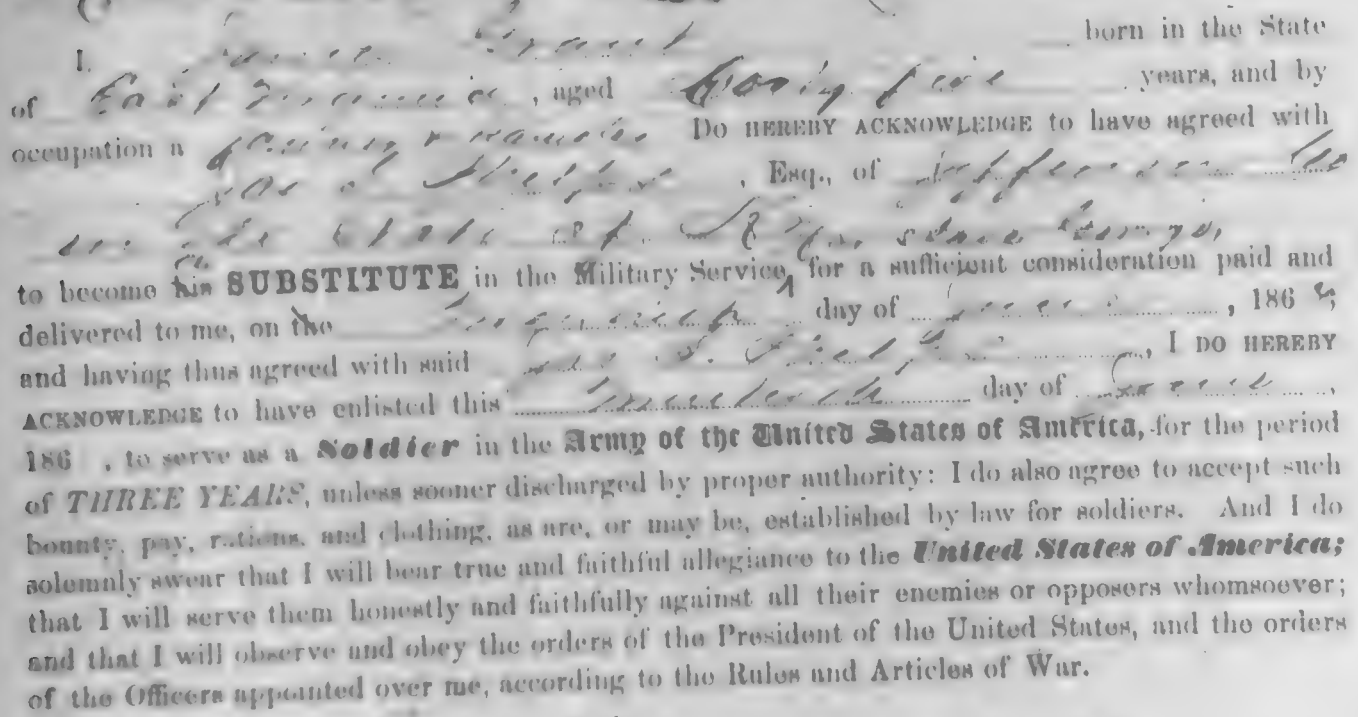 I, Grant born in the State
of East , aged Forty five years, and by
occupation a DO HEREBY ACKNOWLEDGE to have agreed with
, Esq., of Jefferson Co
in the State of
to become his a SUBSTITUTE in the Military Service, for a sufficient consideration paid and
delivered to me, on the day of June , 186
and having thus agreed with said , I DO HEREBY
ACKNOWLEDGE to have enlisted this day of June ,
186 , to serve as a Soldier in the Army of the United States of America, for the period
of THREE YEARS, unless sooner discharged by proper authority: I do also agree to accept such
bounty, pay, rations, and clothing, as are, or may be, established by law for soldiers. And I do
solemnly swear that I will bear true and faithful allegiance to the United States of America;
that I will serve them honestly and faithfully against all their enemies or opposers whomsoever;
and that I will observe and obey the orders of the President of the United States, and the orders
of the Officers appointed over me, according to the Rules and Articles of War.